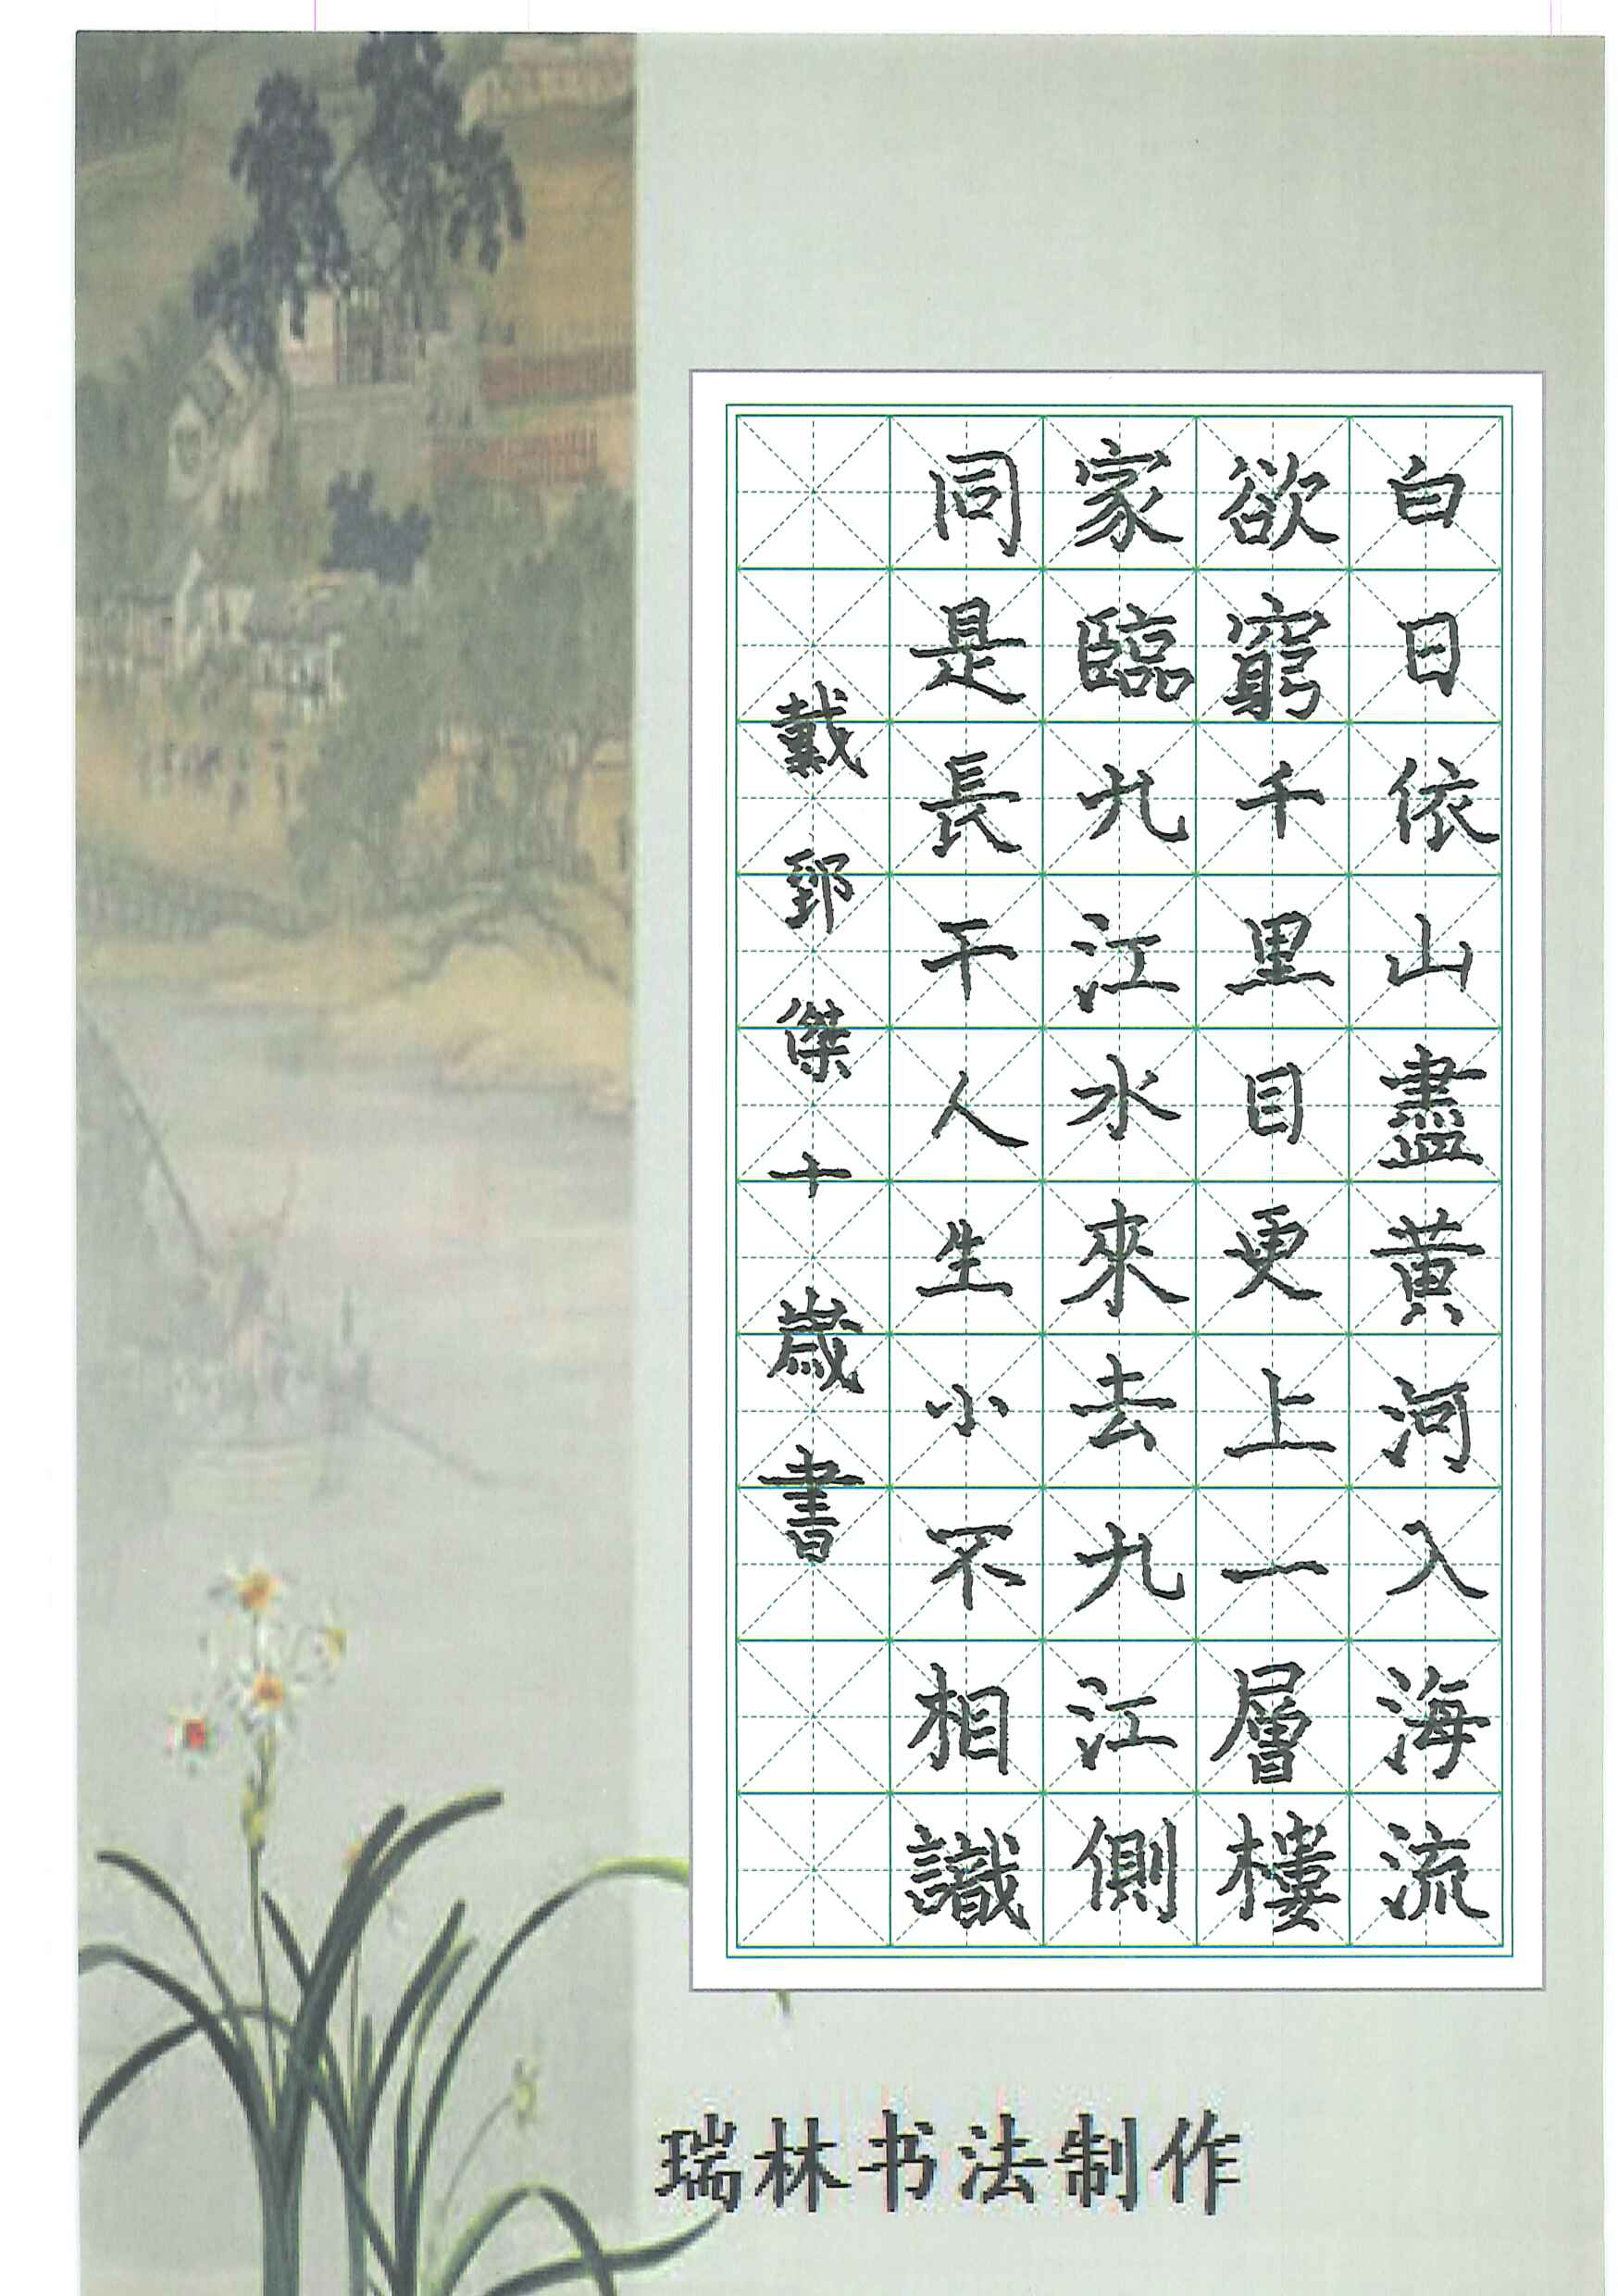 白日依山盡黃河入海流
欲窮千里目更上一層樓
家臨九江水來去九江側
同是長干人生小不相識
戴郅傑十歲書
瑞林书法制作